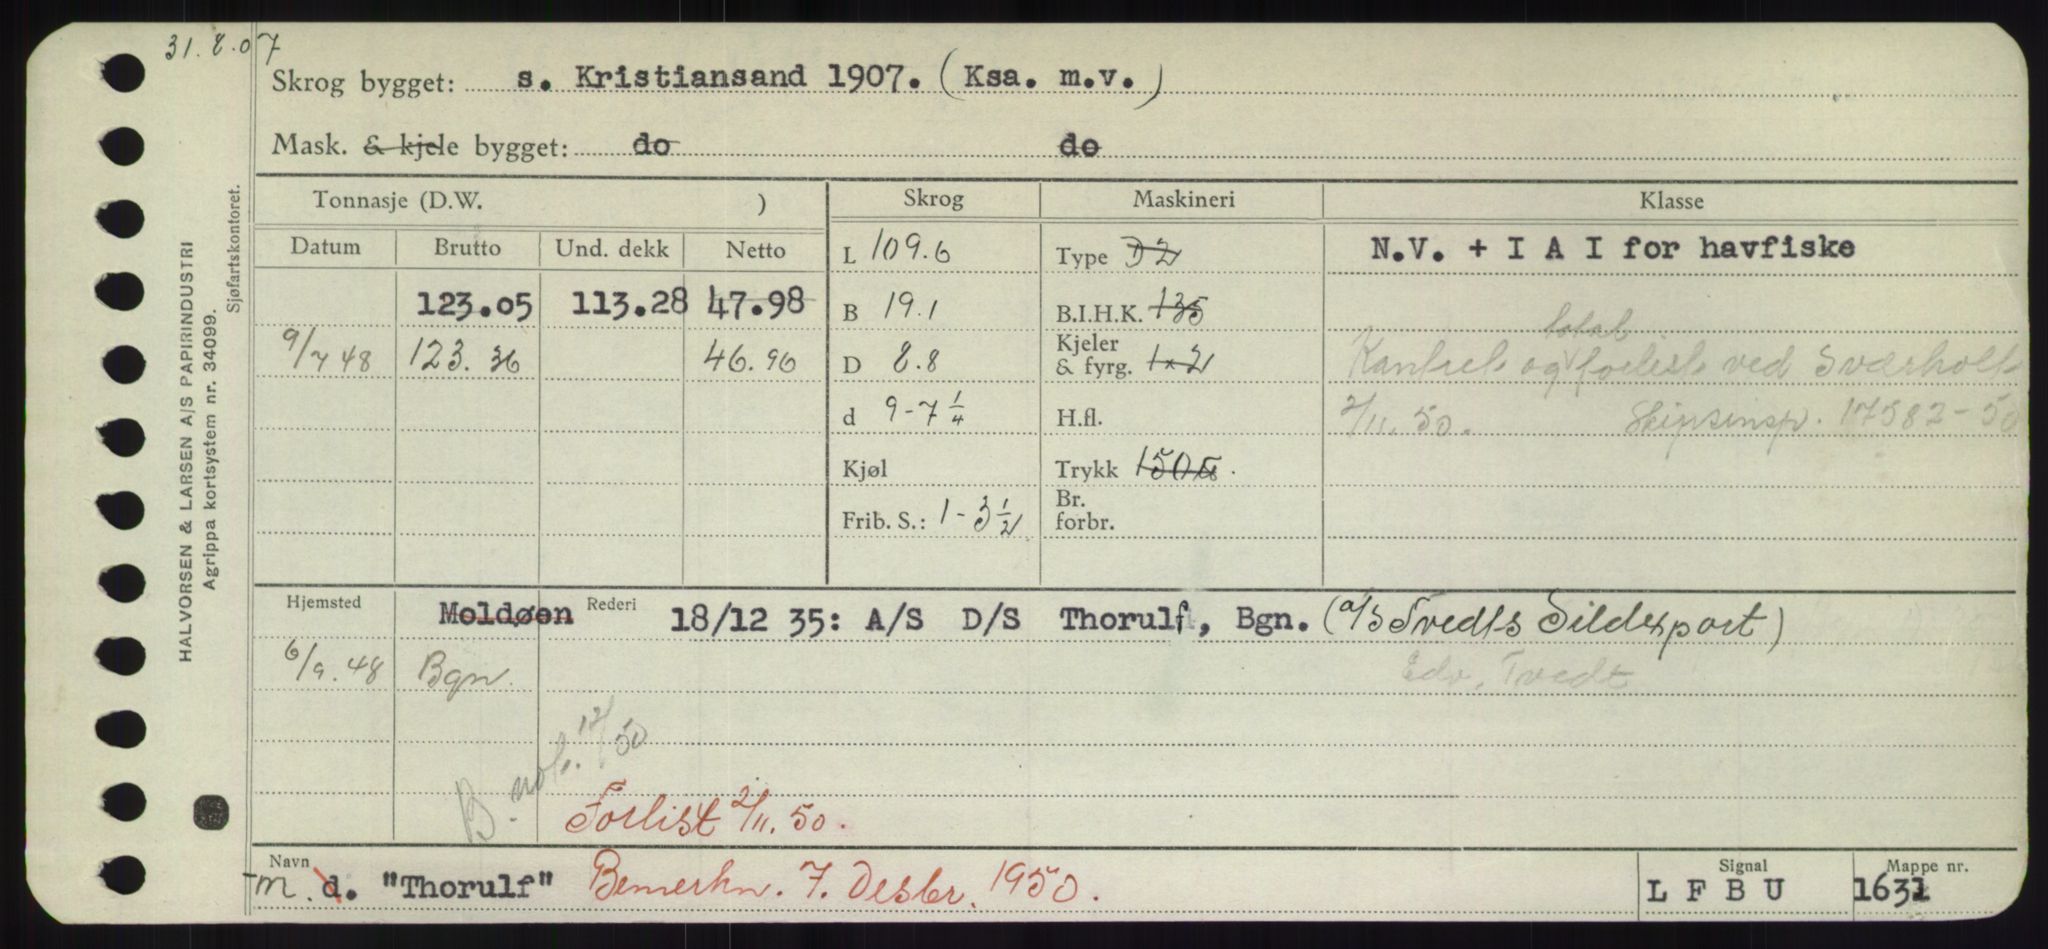 31.8.07
Skrog bygget: s. Kristiansand 1907. (Ksa. m.v.)
Mask. & kjele bygget: do do
HALVORSEN & LARSEN A/S PAPIRINDUSTRI
Agrippa kortsystem nr. 34099.
Sjøfartskontoret.
Tonnasje (D.W. ) Skrog Maskineri Klasse
Datum Brutto Und. dekk Netto L 109.6 Type D2 N.V. + I A I for havfiske
123.05 113.28 47.98 B 19.1 B.I.H.K. 135
total
9/7 48 123.36 46.96 D 8.8 Kjeler & fyrg. 1x2 Kantret og forlist ved Sværholt
d 9-7 1/4 H.fl. 2/11.50. Skipsinsp. 17582-50
Kjøl Trykk 150
Frib. S.: 1-3 1/2 Br. forbr.
Hjemsted Moldøen Rederi 18/12 35: A/S D/S Thorulf, Bgn. (a/s Tvedts Sildexport)
6/9.48 Bgn. Edv. Tvedt
B. not. 12/50
Forlist 2/11.50.
Navn m. d. "Thorulf" Bemerkn. 7. Desbr. 1950. Signal L F B U Mappe nr. 1631